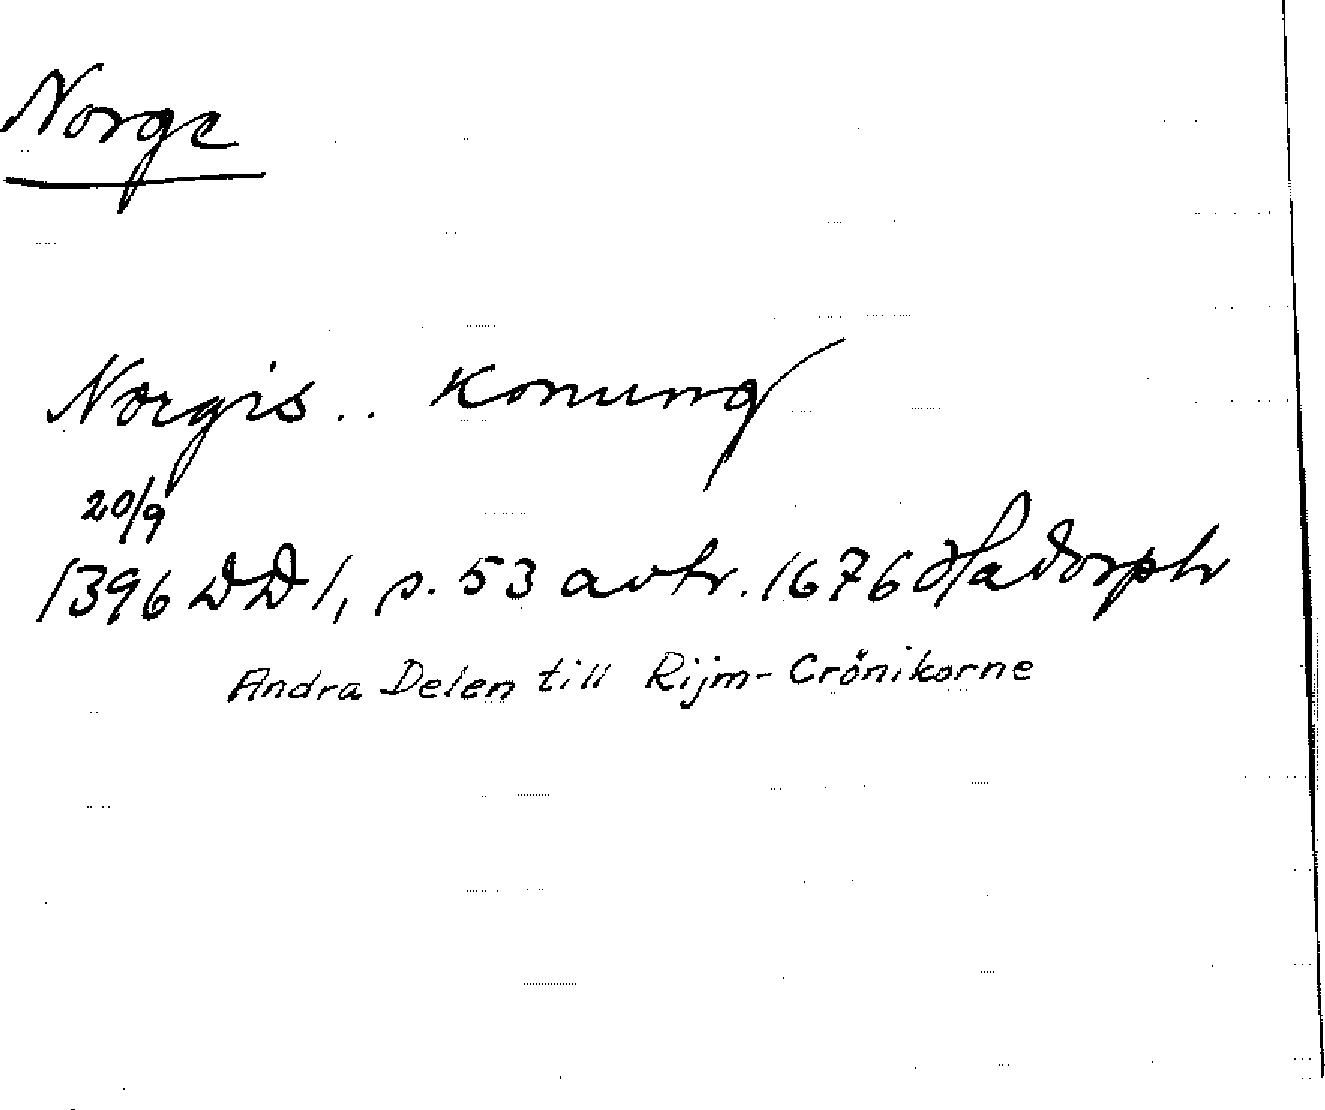 Norge
Norgis.. Konung
20/9
1396 DD 1, s. 53 avtr. 1676 Hadorph
Andra Delen till Rijm-Crönikorne